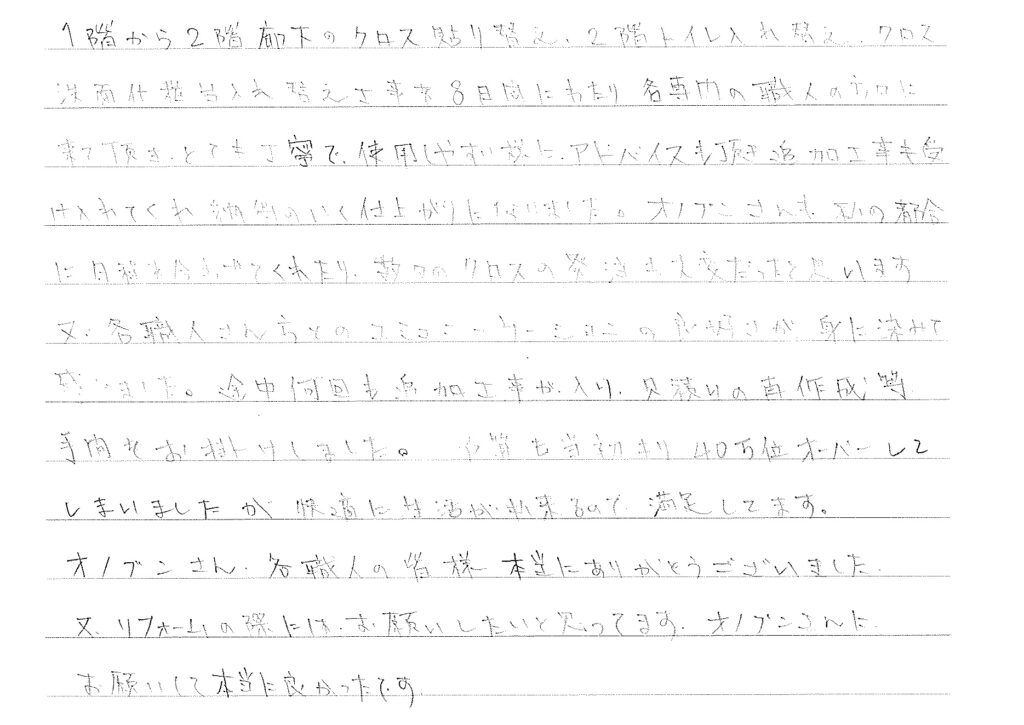 1階から2階廊下のクロス貼り替え、2階トイレ入れ替え、クロス
洗面化粧台入れ替え工事を8日間にわたり各専門の職人の方々に
来て頂き、とても丁寧で、使用しやすい様に、アドバイスも頂き追加工事も受
け入れてくれ納得のいく仕上がりになりました。オノブンさんも私の都合
に日程を合わせてくれたり、数々のクロスの発注も大変だったと思います
又、各職人さん方とのコミュニケーションの良好さが身に染みて
感じました。途中何回も追加工事が入り、見積りの再作成等
手間をお掛けしました。予算も当初より40万位オーバーして
しまいましたが快適に生活が出来るので満足してます。
オノブンさん、各職人の皆様本当にありがとうございました。
又、リフォームの際には、お願いしたいと思ってます、オノブンさんに
お願いして本当に良かったです